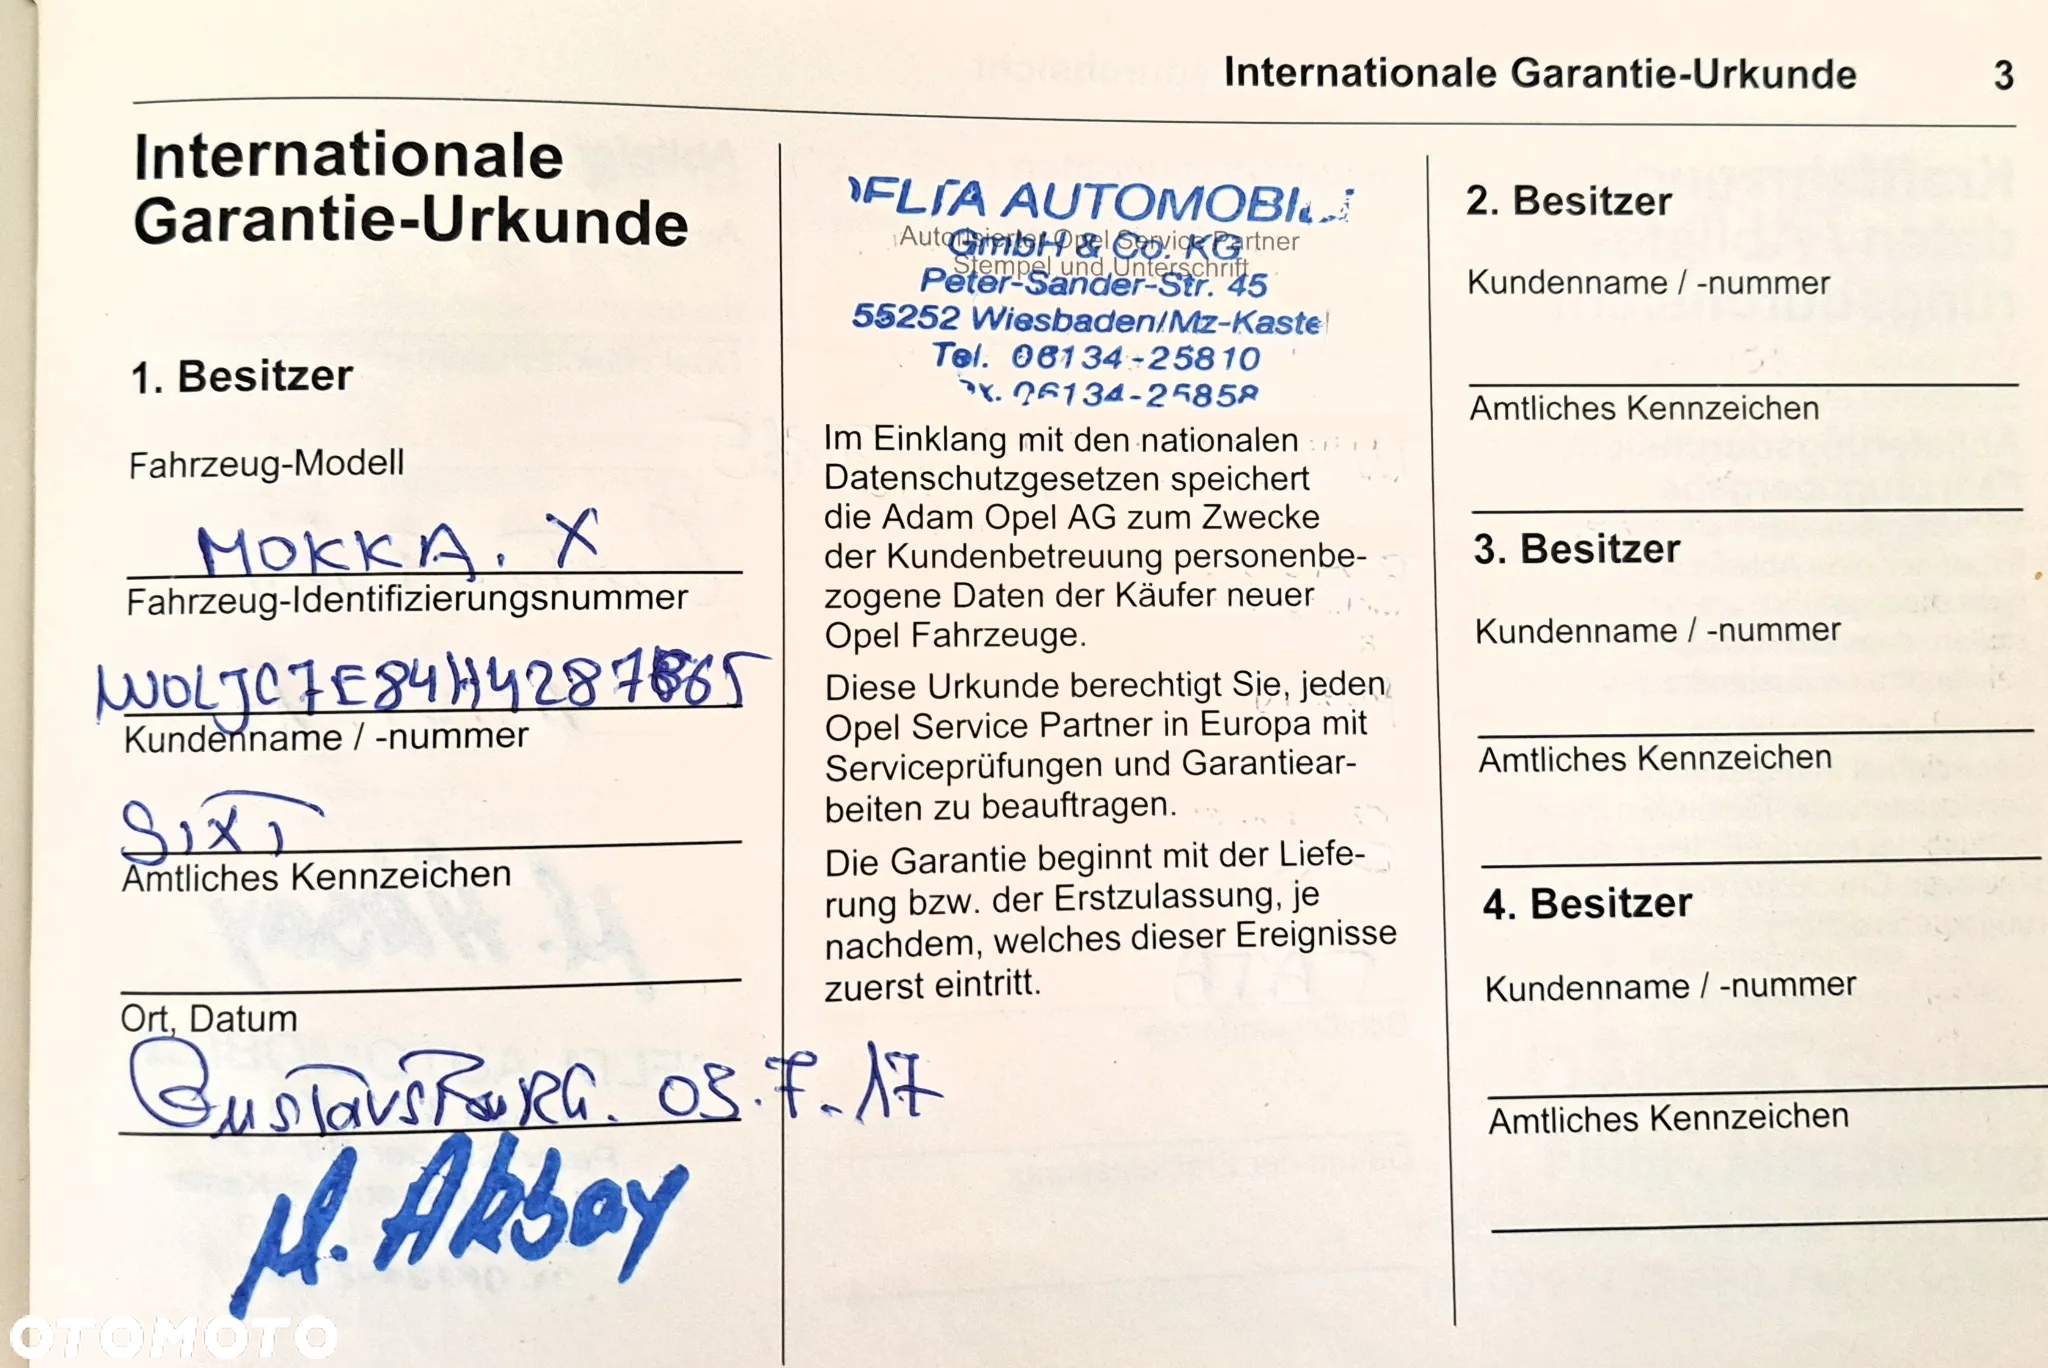 Internationale Garantie-Urkunde 3
Internationale
Garantie-Urkunde
1. Besitzer
Fahrzeug-Modell
MOKKA. X
Fahrzeug-Identifizierungsnummer
Kundenname / -nummer
SIXT
Amtliches Kennzeichen
Ort, Datum
Gustavsburg. 03.7.17
AUTOMOBILE
Autorisierter Opel Service Partner
GmbH & Co. KG
Stempel und Unterschrift
Peter-Sander-Str. 45
55252 Wiesbaden/Mz-Kastel
Tel. 06134-25810
06134-25858
Im Einklang mit den nationalen
Datenschutzgesetzen speichert
die Adam Opel AG zum Zwecke
der Kundenbetreuung personenbe-
zogene Daten der Käufer neuer
Opel Fahrzeuge.
Diese Urkunde berechtigt Sie, jeden
Opel Service Partner in Europa mit
Serviceprüfungen und Garantiear-
beiten zu beauftragen.
Die Garantie beginnt mit der Liefe-
rung bzw. der Erstzulassung, je
nachdem, welches dieser Ereignisse
zuerst eintritt.
2. Besitzer
Kundenname / -nummer
Amtliches Kennzeichen
3. Besitzer
Kundenname / -nummer
Amtliches Kennzeichen
4. Besitzer
Kundenname / -nummer
Amtliches Kennzeichen
OTOMOTO